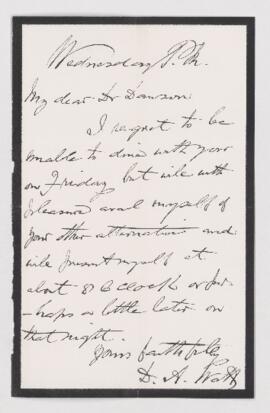 Wednesday P.M.
My dear Dr Dawson
I regret to be
unable to dine with you
on Friday but will with
pleasure avail myself of
your other alternative and
will present myself at
about 8 O'clock or per-
-haps a little later on
that night.
Yours faithfully
D. A. Watt